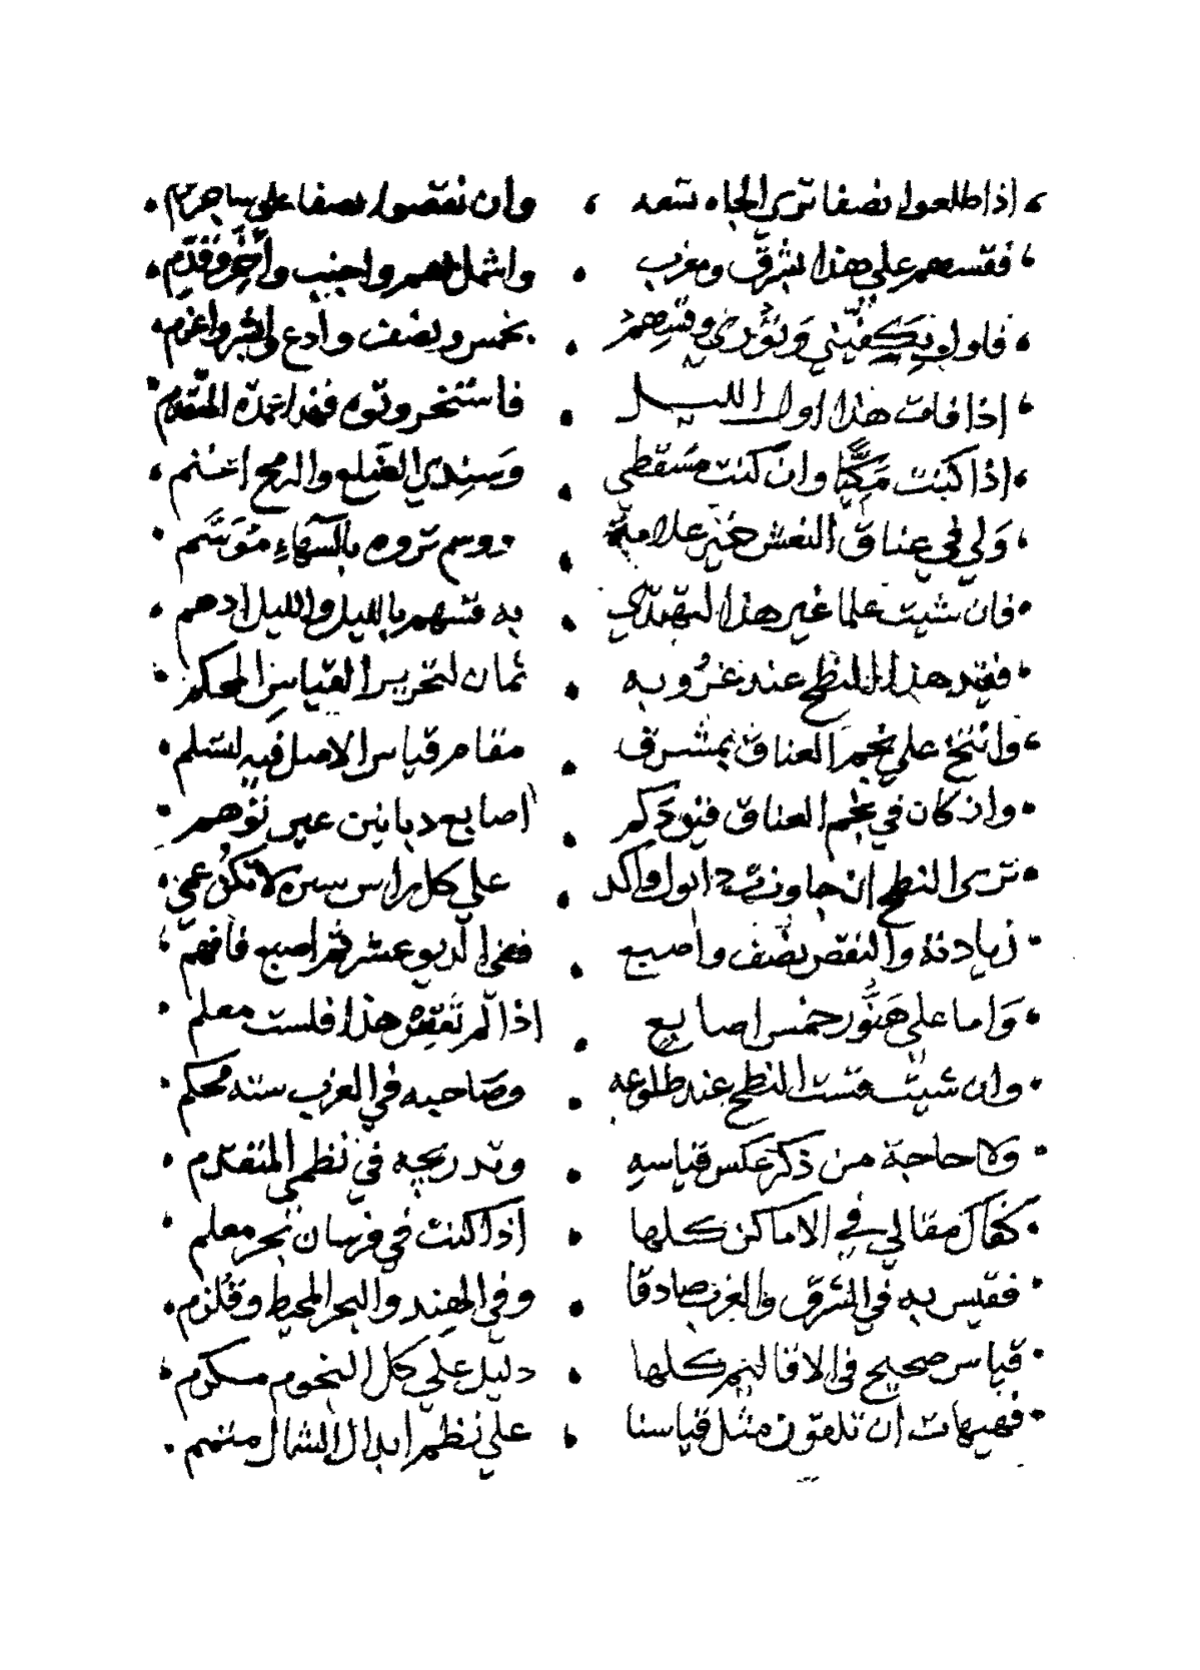 اذا طلعوا نصفا ترى الجاه تسعه وان نقصوا نصفا على
فقسهم على هذا بشرق ومغرب واشمل بهم واجنب وأخر وقدم
بخمس ونصف وادع لي
اذا فات هذا اول الليل فاستخر وتوه فهذا المتقدم
اذا كنت مكيا وان كنت مسقطي وسندي الضلع والرمح
ولي في عناق النعش خير علامة ووسم تروه بالسهاء متوسم
فان شيت علما غير هذا لتهتدي به قسهم بالليل والليل ادهم
فقيد هذا النطح عند غروبه ثمان لتحرير القياس المحكم
على نجم العناق بمشرق مقام قياس الاصل فيه لتسلم
وان كان في نجم العناق اصابع دبابين غير توهم
ترى النطح ان على كل راس
زيادته والنقص نصف واصبع ففي الديو عشر ثم اصبع فافهم
واما على هنور خمس اصابع اذا لم هذا فلست معلم
وان شيت قست النطح عند طلوعه وصاحبه في الغرب سته محكم
ولا حاجة من ذكر عكس قياسه وتدريجه في نظمي المتقدم
كفاك مقالي في الاماكن كلها اذا كنت في فرسان بحر معلم
فقيس به في الشرق والغرب صادقا وفي الهند والبحر المحيط وقلزم
قياس صحيح في الاقاليم كلها دليل على كل النجوم مكرم
فهيهات ان تلقون مثل قياسنا على نظم ابدال الشمال متمم